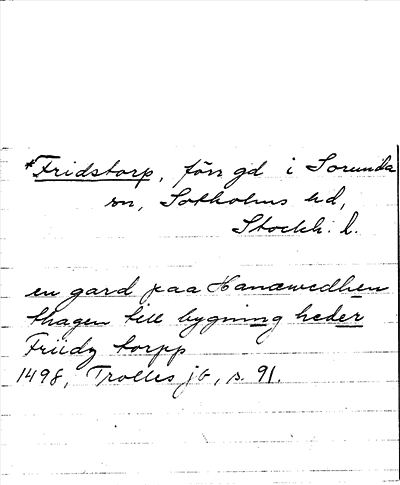 *Fridstorp, förr gd i Sorunda
sn, Sotholms hd,
Stockh. l.
en gard paa Hanæwedhen
thagen till bygning heder
Friidz torpp
1498, Trolles jb, s. 91.